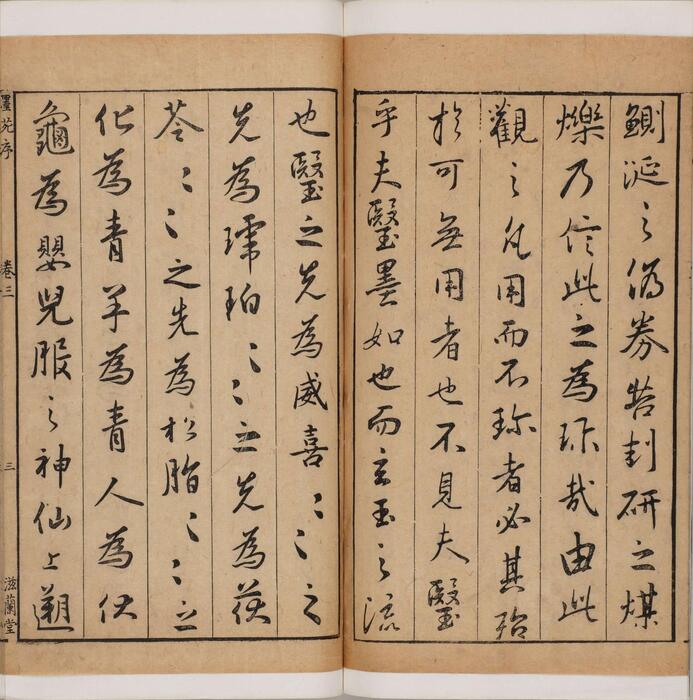 鰂涎之偽券苔封研之煤
爍乃信此之為珎哉由此
觀之凡用而不珎者必其殆
於可無用者也不見夫瑿
乎夫瑿墨如也而玄玉之流
也瑿之先為威喜〻〻之
先為琥珀〻〻之先為茯
苓〻〻之先為松脂〻〻之
化為青羊為青人為伏
龜為嬰兒服之神仙上遡
墨苑序 卷三 三 滋蘭堂